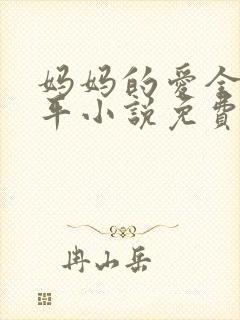 妈妈的爱全
平小說免費
冉山岳